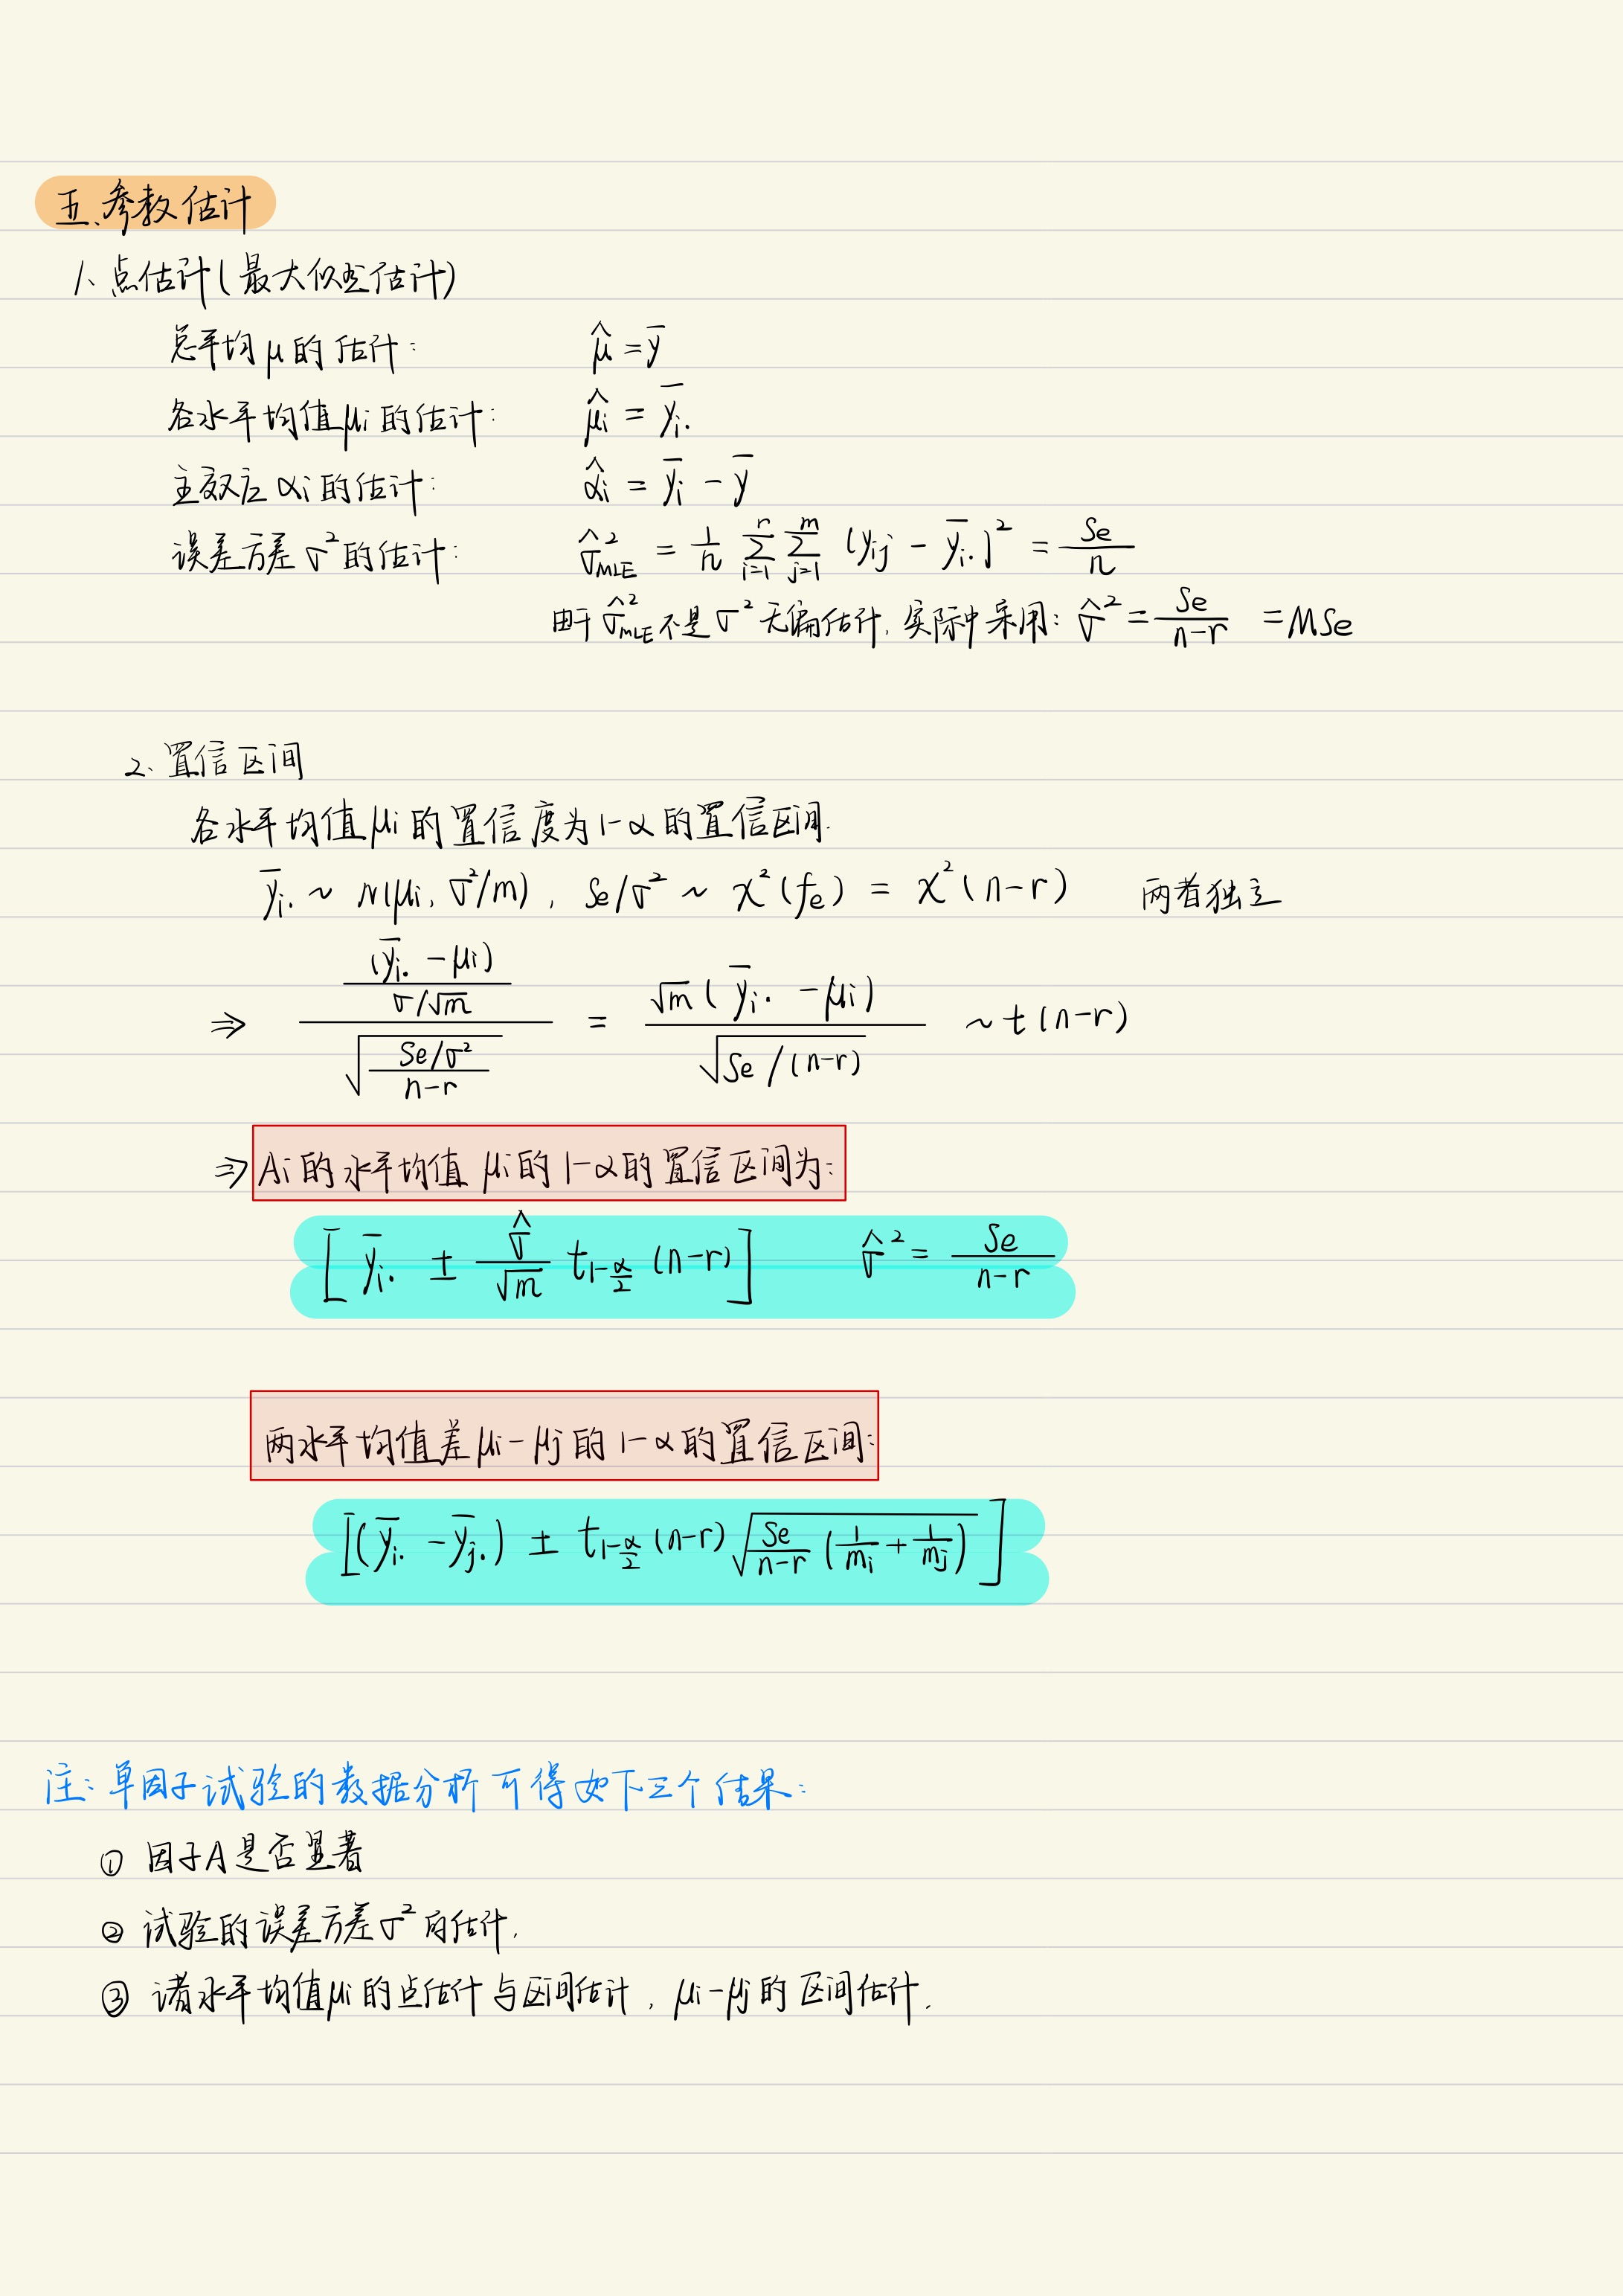 五、参数估计
1、点估计(最大似然估计)
总平均μ的估计: μ̂ = ȳ
各水平均值μi的估计: μ̂i = ȳi.
主效应αi的估计: α̂i = ȳi - ȳ
误差方差σ²的估计: σ̂²MLE = 1/n Σ(i=1→r) Σ(j=1→m) (yij - ȳi.)² = Se/n
由于σ̂²MLE不是σ²无偏估计, 实际中采用: σ̂² = Se/(n-r) = MSe
2、置信区间
各水平均值μi的置信度为1-α的置信区间.
ȳi. ~ N(μi, σ²/m), Se/σ² ~ χ²(fe) = χ²(n-r) 两者独立
⇒ ((ȳi. - μi)/(σ/√m)) / √((Se/σ²)/(n-r)) = √m(ȳi. - μi) / √(Se/(n-r)) ~ t(n-r)
⇒ Ai的水平均值μi的1-α的置信区间为:
[ȳi. ± σ̂/√m t1-α/2 (n-r)] σ̂² = Se/(n-r)
两水平均值差μi-μj的1-α的置信区间:
[(ȳi. - ȳj.) ± t1-α/2 (n-r) √(Se/(n-r) (1/mi + 1/mj))]
注: 单因子试验的数据分析可得如下三个结果:
① 因子A是否显著
② 试验的误差方差σ²的估计.
③ 诸水平均值μi的点估计与区间估计, μi-μj的区间估计.